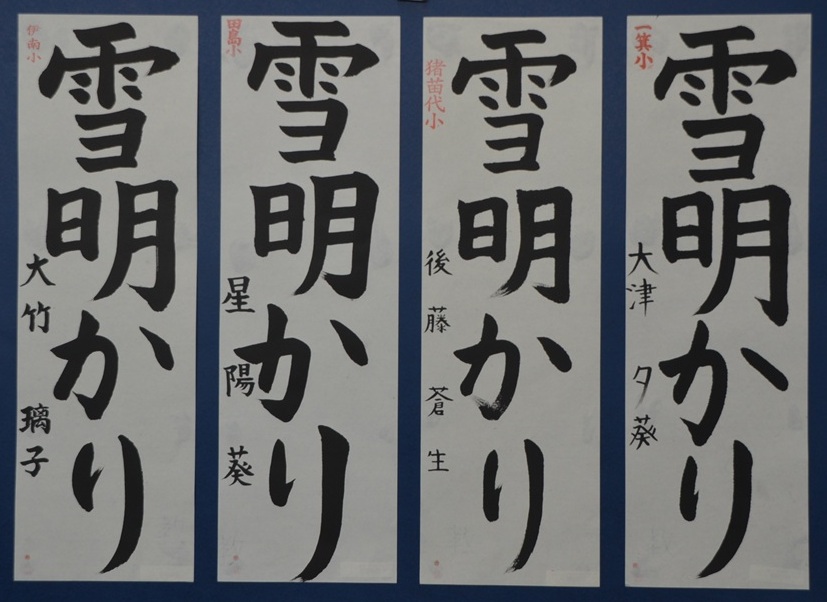 一箕小
雪明かり
大津 夕葵
猪苗代小
雪明かり
後藤 蒼生
田島小
雪明かり
星 陽葵
伊南小
雪明かり
大竹 璃子